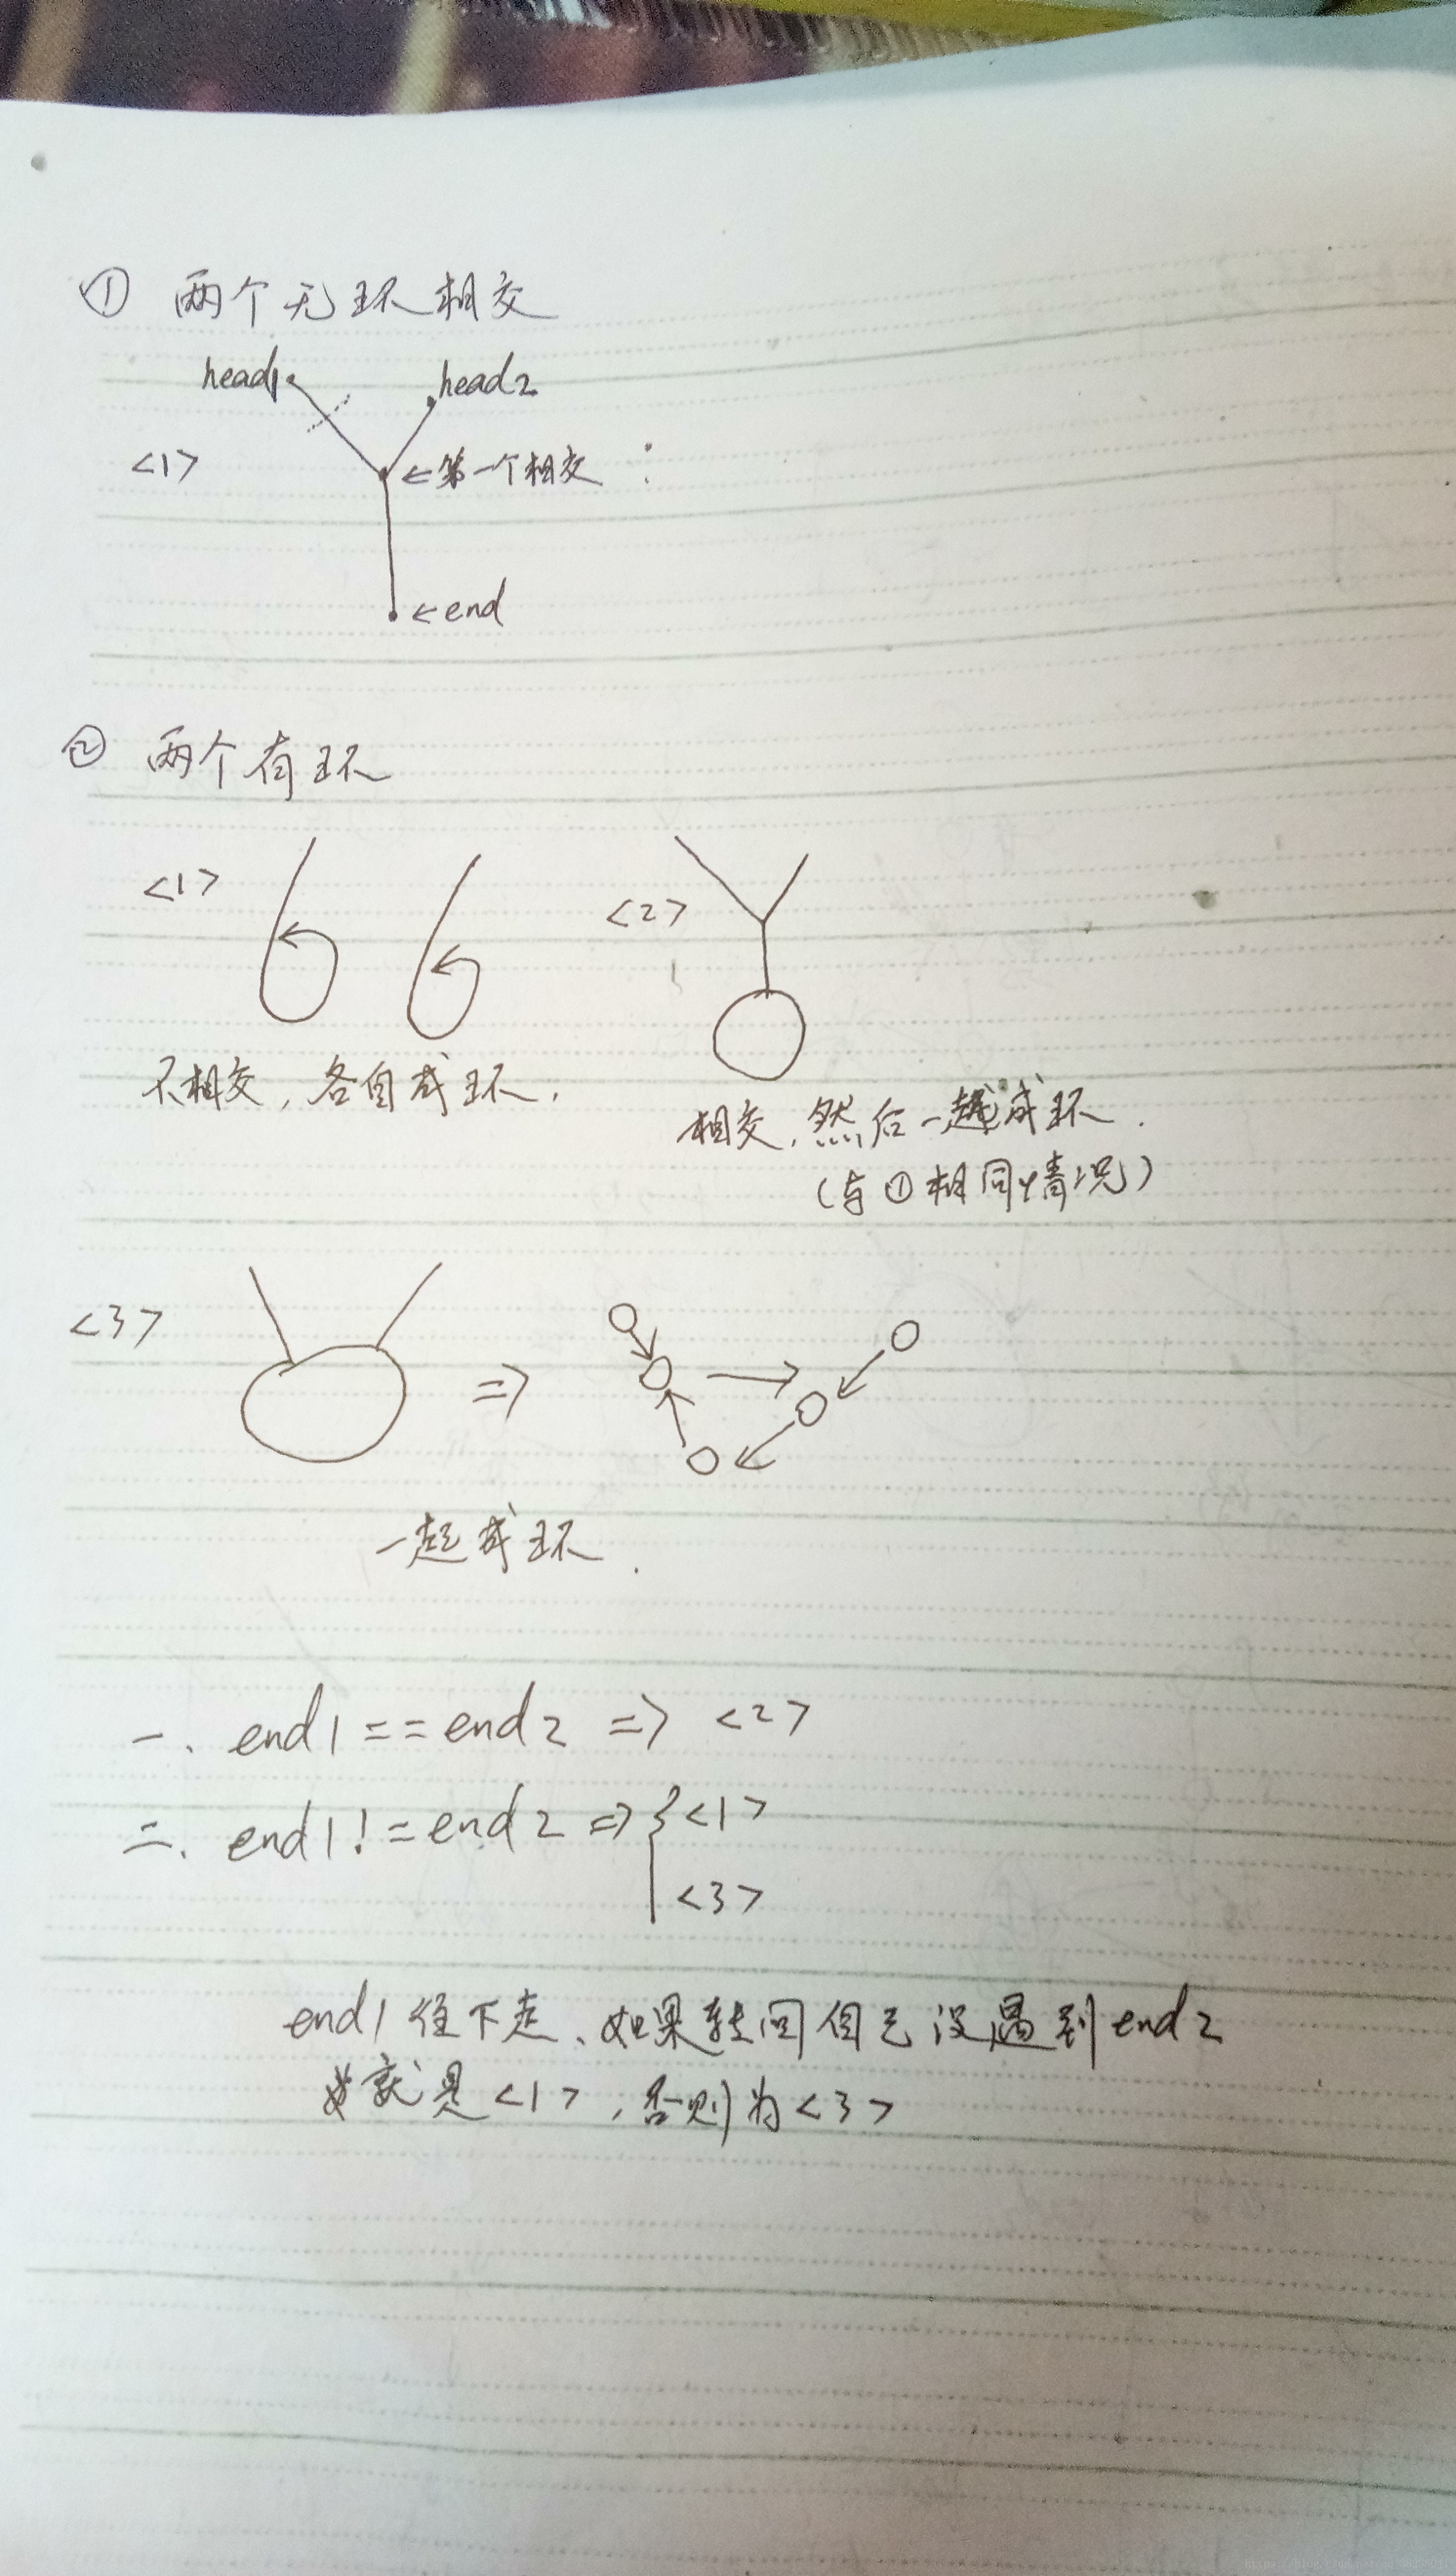 ① 两个无环相交
head1 head2
<1> ←第一个相交
←end
② 两个有环
<1> <2>
不相交，各自成环．
相交，然后一起成环．
（与①相同情况）
<3> =>
一起成环．
一、end1==end2 => <2>
二、end1!=end2 => { <1>
<3>
end1往下走、如果转回自己没遇到end2
就是<1>，否则为<3>